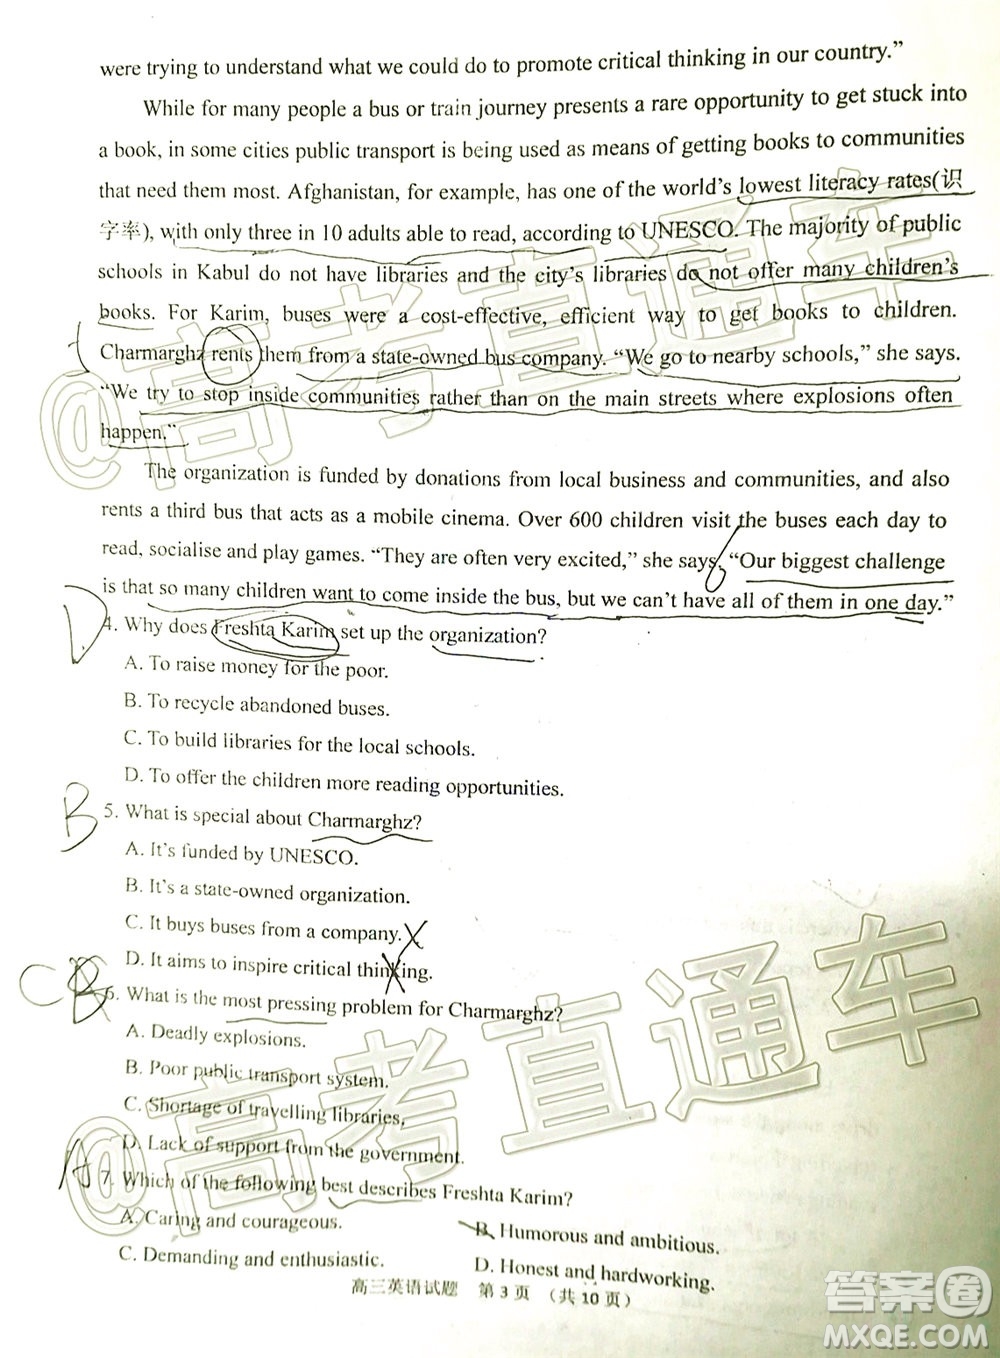 were trying to understand what we could do to promote critical thinking in our country.”
While for many people a bus or train journey presents a rare opportunity to get stuck into
a book, in some cities public transport is being used as means of getting books to communities
that need them most. Afghanistan, for example, has one of the world’s lowest literacy rates(识
字率), with only three in 10 adults able to read, according to UNESCO. The majority of public
schools in Kabul do not have libraries and the city’s libraries do not offer many children’s
books. For Karim, buses were a cost-effective, efficient way to get books to children.
Charmarghz rents them from a state-owned bus company. “We go to nearby schools,” she says.
“We try to stop inside communities rather than on the main streets where explosions often
happen.”
The organization is funded by donations from local business and communities, and also
rents a third bus that acts as a mobile cinema. Over 600 children visit the buses each day to
read, socialise and play games. “They are often very excited,” she says. “Our biggest challenge
is that so many children want to come inside the bus, but we can’t have all of them in one day.”
D
4. Why does Freshta Karim set up the organization?
A. To raise money for the poor.
B. To recycle abandoned buses.
C. To build libraries for the local schools.
D. To offer the children more reading opportunities.
B
5. What is special about Charmarghz?
A. It’s funded by UNESCO.
B. It’s a state-owned organization.
C. It buys buses from a company.
D. It aims to inspire critical thinking.
C B
6. What is the most pressing problem for Charmarghz?
A. Deadly explosions.
B. Poor public transport system.
C. Shortage of travelling libraries.
D. Lack of support from the government.
A
7. Which of the following best describes Freshta Karim?
A. Caring and courageous.
B. Humorous and ambitious.
C. Demanding and enthusiastic.
D. Honest and hardworking.
高三英语试题 第 3 页 （共 10 页）
@高考直通车
@高考直通车
答案圈
MXQE.COM